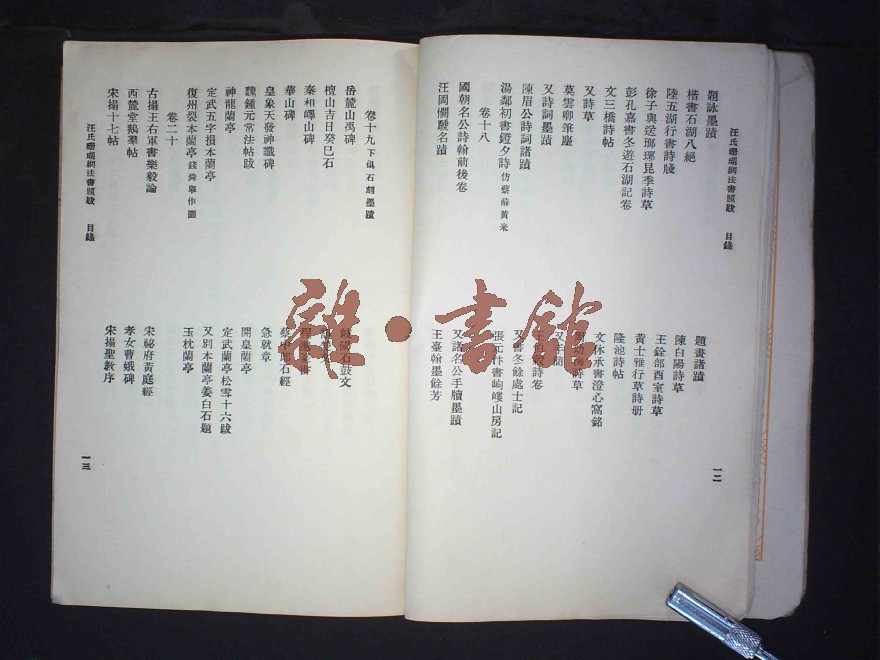 汪氏珊瑚網法書題跋 目錄
題詠墨蹟
題畫諸蹟
楷書石湖八絕
陳白陽詩草
陸五湖行書詩牋
王銓部酉室詩草
徐子與送瑯琊昆季詩草
黃士雅行草詩册
彭孔嘉書冬遊石湖記卷
隆池詩帖
文三橋詩帖
文休承書澄心窩銘
又詩草
詩草
莫雲卿筆麈
又手
又詩詞墨蹟
詩卷
陳眉公詩詞諸蹟
又書冬餘處士記
湯鄰初書鐙夕詩仿蔡蘇黃米
張元什書岣嶁山房記
卷十八
國朝名公詩翰前後卷
又諸名公手牘墨蹟
汪岡憪駿名蹟
王臺翰墨餘芳
一二
卷十九下碣石刻墨蹟
岳麓山禹碑
岐陽石鼓文
檀山吉日癸巳石
秦相嶧山碑
華山碑
蔡中郎石經
皇象天發神讖碑
急就章
魏鍾元常法帖跋
開皇蘭亭
神龍蘭亭
定武蘭亭松雪十六跋
定武五字損本蘭亭
又別本蘭亭姜白石題
復州裂本蘭亭錢舜舉作圖
玉枕蘭亭
卷二十
古搨王右軍書樂毅論
宋祕府黃庭經
西麓堂鵝羣帖
孝女曹娥碑
宋搨十七帖
宋搨聖教序
汪氏珊瑚網法書題跋 目錄
一三
雜·書館